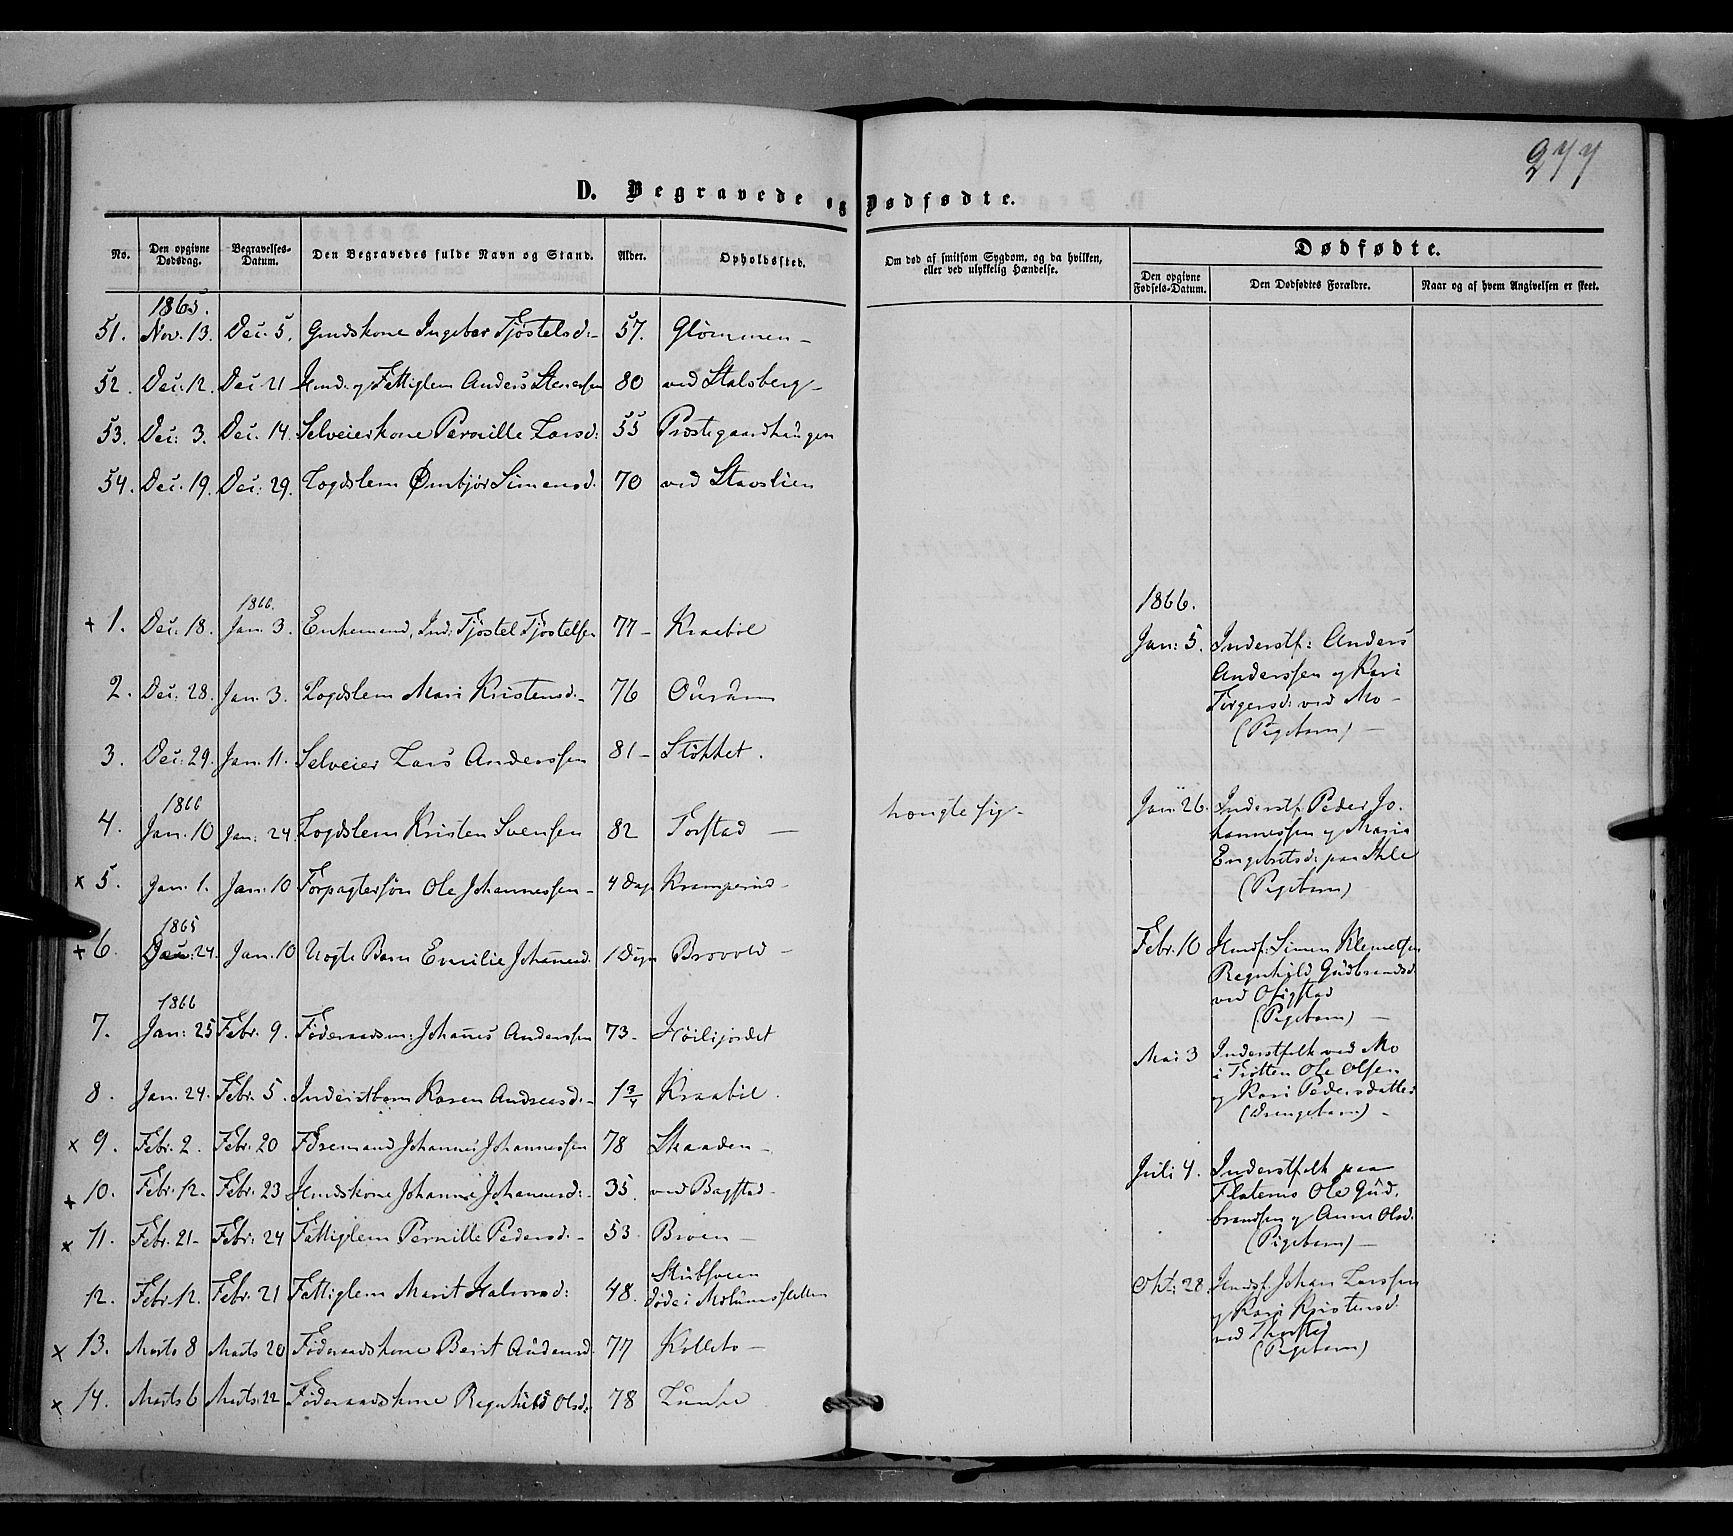 277
D. Begravede og Dødfødte.
No. Den opgivne Dødsdag. Begravelses-Datum. Den Begravedes fulde Navn og Stand. Alder. Opholdssted. Om død af smitsom Sygdom, og da hvilken, eller ved ulykkelig Hændelse. Dødfødte.
Den opgivne Fødsels-Datum. Den Dødfødtes Forældre. Naar og af hvem Angivelsen er skeet.
1865.
51. Nov. 13. Dec. 5. Huuskone Ingebor Tjøstelsd:- 57. Glømmen -
52. Dec: 12. Dec 21 Huusm: og Fattiglem Anders Stenersen 80 ved Stalsberg -
53. Dec: 3. Dec. 14. Selveierkone Pernille Larsd: 55 Præstegaardhaugen
54. Dec: 19. Dec: 29. Logdslem Ømbjør Simensd: 70 ved Stavslien
1866.
+ 1. Dec: 18. Jan: 3. Enkemand, Ind: Tjøstel Tjøstelsen 77 - Kraabøl
2. Dec: 28. Jan. 3. Logdslem Mari Kristensd:- 76
3. Dec: 29. Jan. 11. Selveier Lars Anderssen 81 - Støkket.
1866
4. Jan: 10 Jan: 24. Logdslem Kristen Svensen 82 Torstad - hængte sig -
x 5. Jan: 1. Jan: 10 Forpagtersøn Ole Johannessen - 4 Dage Kramperud -
1865
+ 6. Dec: 24 Jan. 10 Uægte Barn Emilie Johannesd: 1 Døgn Brovold -
1866
7. Jan: 25 Febr. 9. Føderaadsm: Johanes Anderssen 73 - Høilijordet
8. Jan. 24. Febr. 5. Inderstbarn Karen Andreasd:- 1 3/4 Kraabøl.
x 9. Febr. 2. Febr. 20 Johannes Johannessen 78 Skaaden -
+ 10. Febr. 12. Febr. 23 Huuskone Johanne Johannesd:- 35. ved Bagstad -
x 11. Febr. 21 - Febr: 24 Fattiglem Pernille Pedersd:- 53. Broen -
12. Febr. 12. Febr. 21 Fattiglem Marit Halvorsd: 48. Stubsveen
døde i
x 13. Marts 8 Marts 20 Føderaadskone Berit Audensd: 77 Kolleto -
x 14. Marts 6 Marts 22 Føderaadskone Ragnhild Olsd: 78 Lunke
1866.
Jan: 5. Inderstf: Anders
Anderssen og Kari
Torgersd: ved Mo -
(Pigebarn) -
Jan: 26. Inderstf. Peder Jo-
hannessen og Maria
Engebretsd: paa Ihle
(Pigebarn) -
Febr. 10 Huusf: Simen Klemetsen
Ragnhild Gudbrandsd
ved Ofigstad
(Pigebarn) -
Mai 3 Inderstfolk ved Mo
i Trøtten Ole Olsen
og Kari Pedersdatter
(Drengebarn) -
Juli 4. Inderstfolk paa
Flaterno Ole Gud-
brandsen og Anne Olsd:
(Pigebarn) -
Okt: 28 Huusf. Johan Larssen
og Kari Kristensd:
ved Thorstad
(Pigebarn)